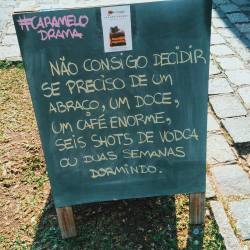 #CARAMELO
DRAMA
NÃO CONSIGO DECIDIR
SE PRECISO DE UM
ABRAÇO, UM DOCE,
UM CAFÉ ENORME,
SEIS SHOTS DE VODCA
OU DUAS SEMANAS
DORMINDO.